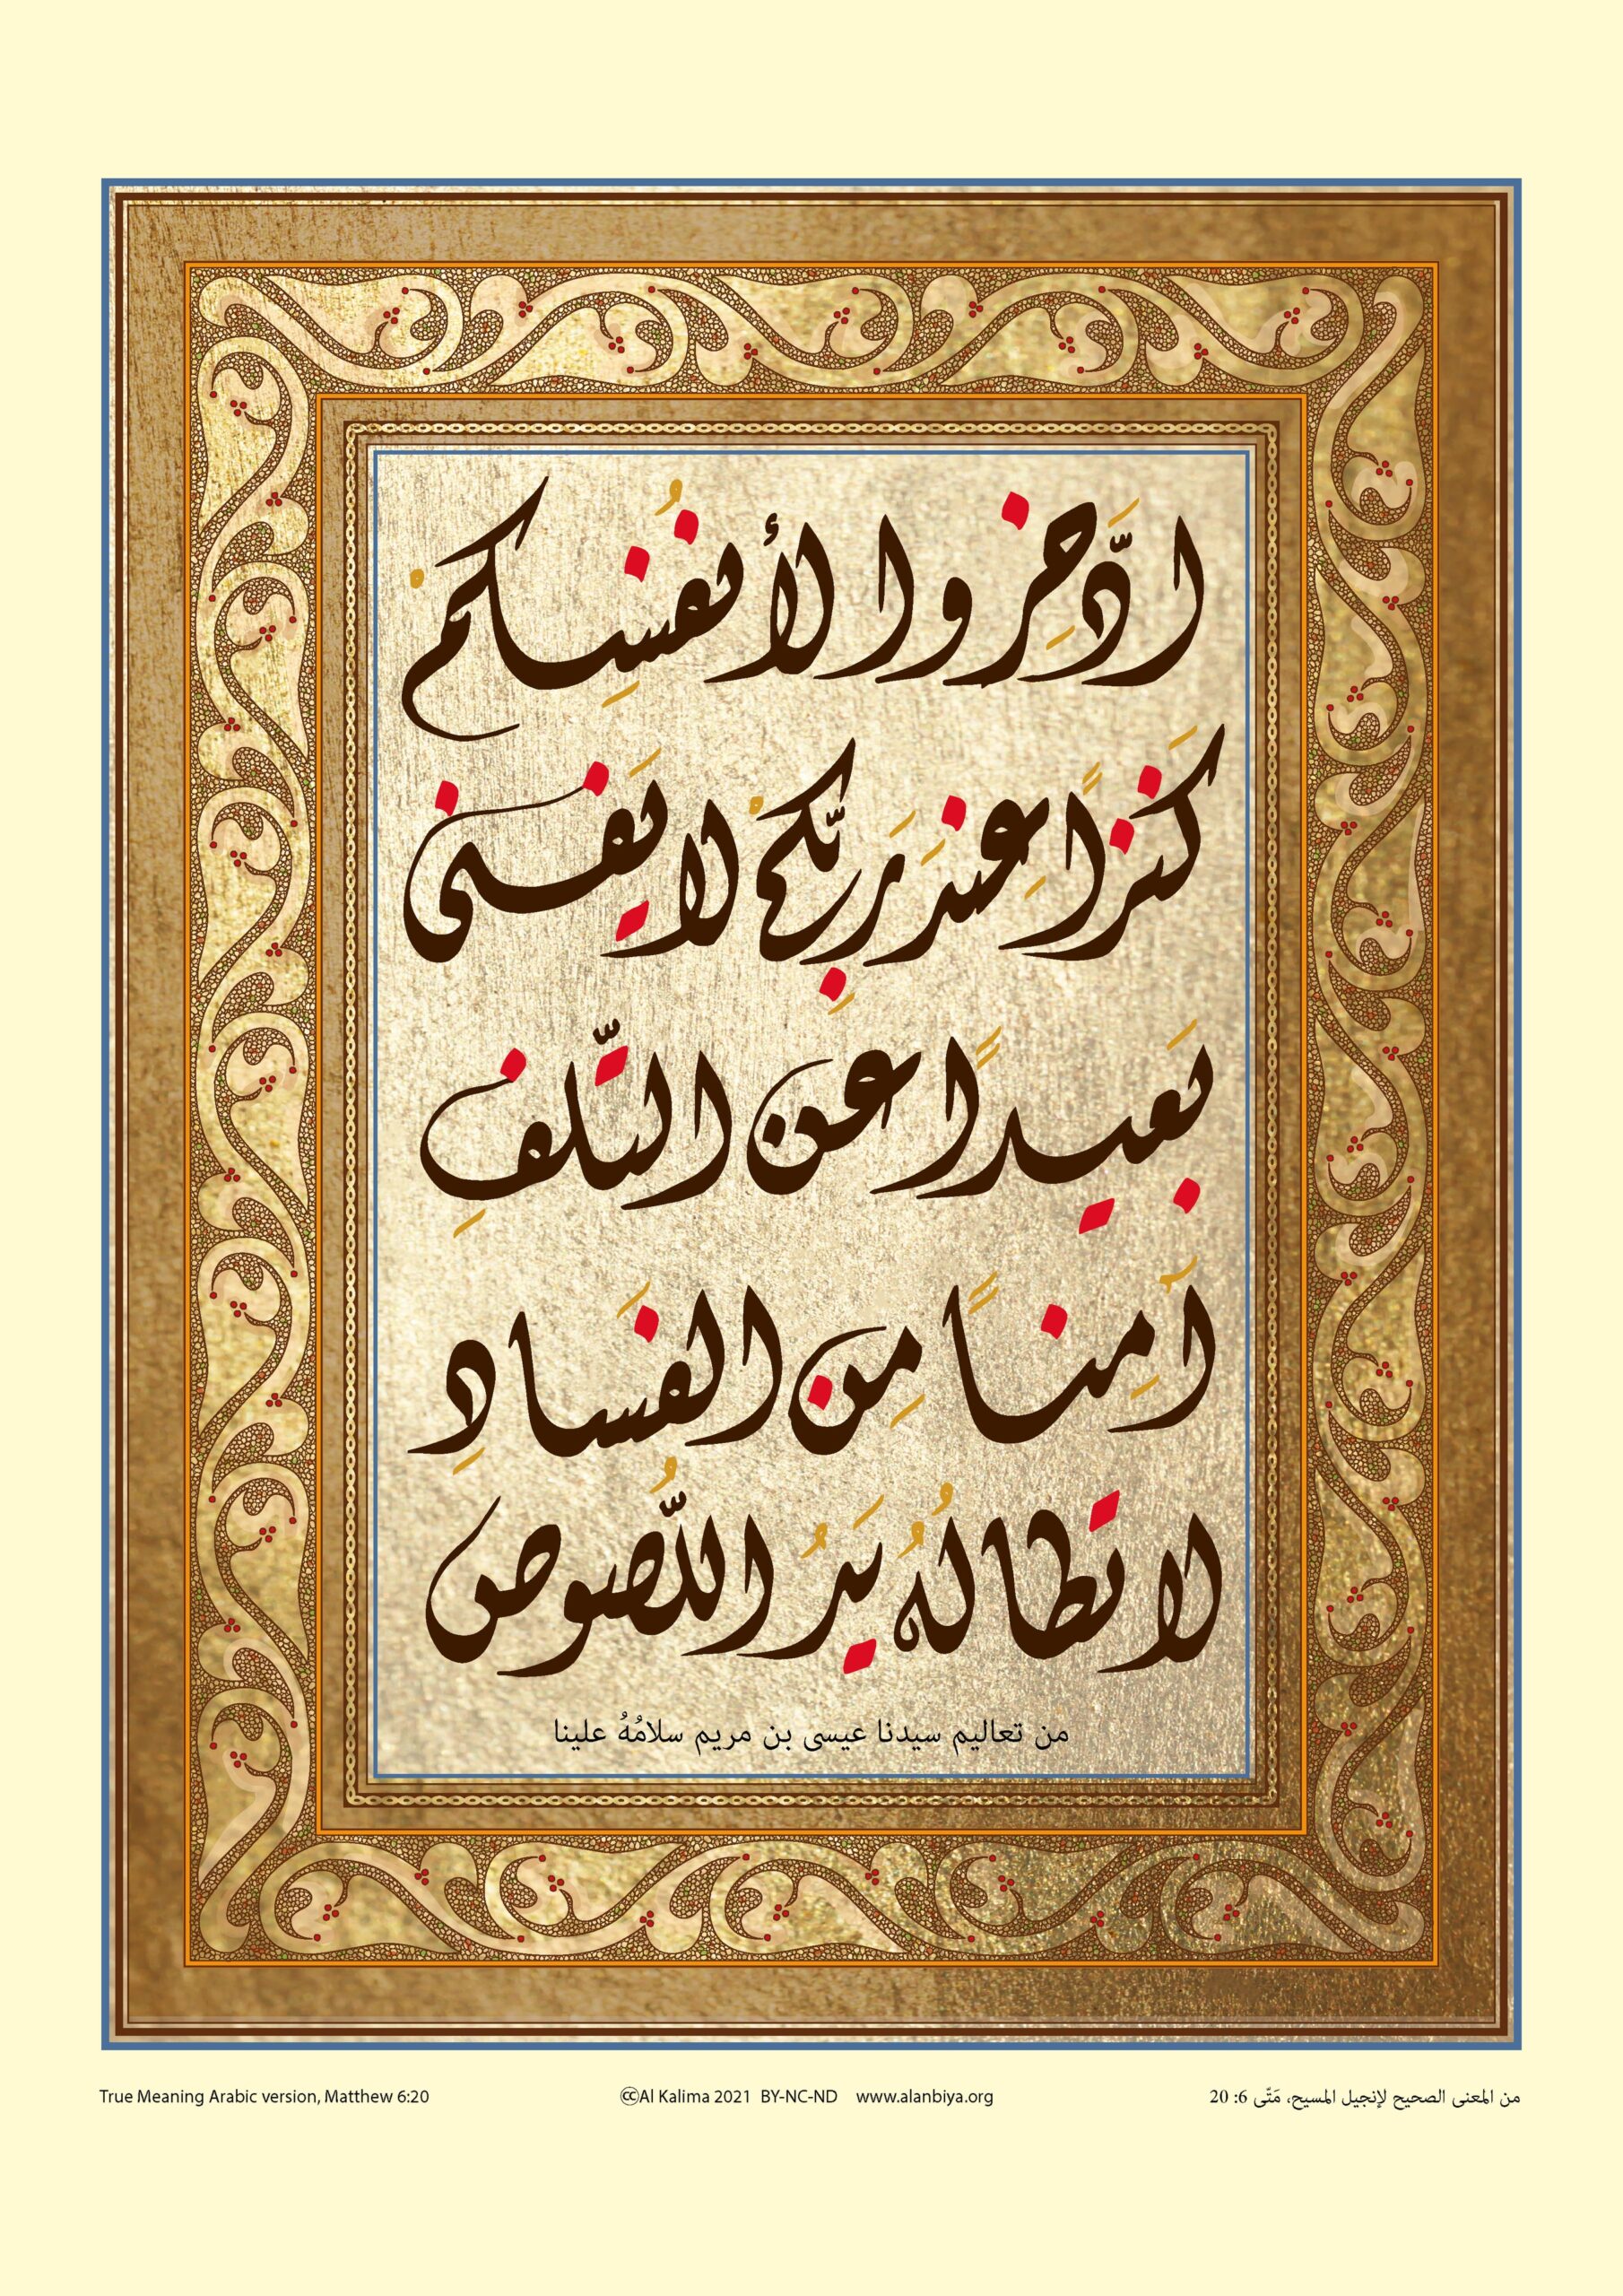 ادَّخِروا لأنفُسِكمْ
كَنزًا عِندَ رَبِّكمْ لا يَفنى
بَعيدًا عن التّلفِ
آمِنًا مِن الفَسادِ
لا تطالُهُ يَدُ اللُّصوص
من تعاليم سيدنا عيسى بن مريم سلامُهُ علينا
True Meaning Arabic version, Matthew 6:20
🄭Al Kalima 2021 BY-NC-ND www.alanbiya.org
من المعنى الصحيح لإنجيل المسيح، مَتّى 6: 20